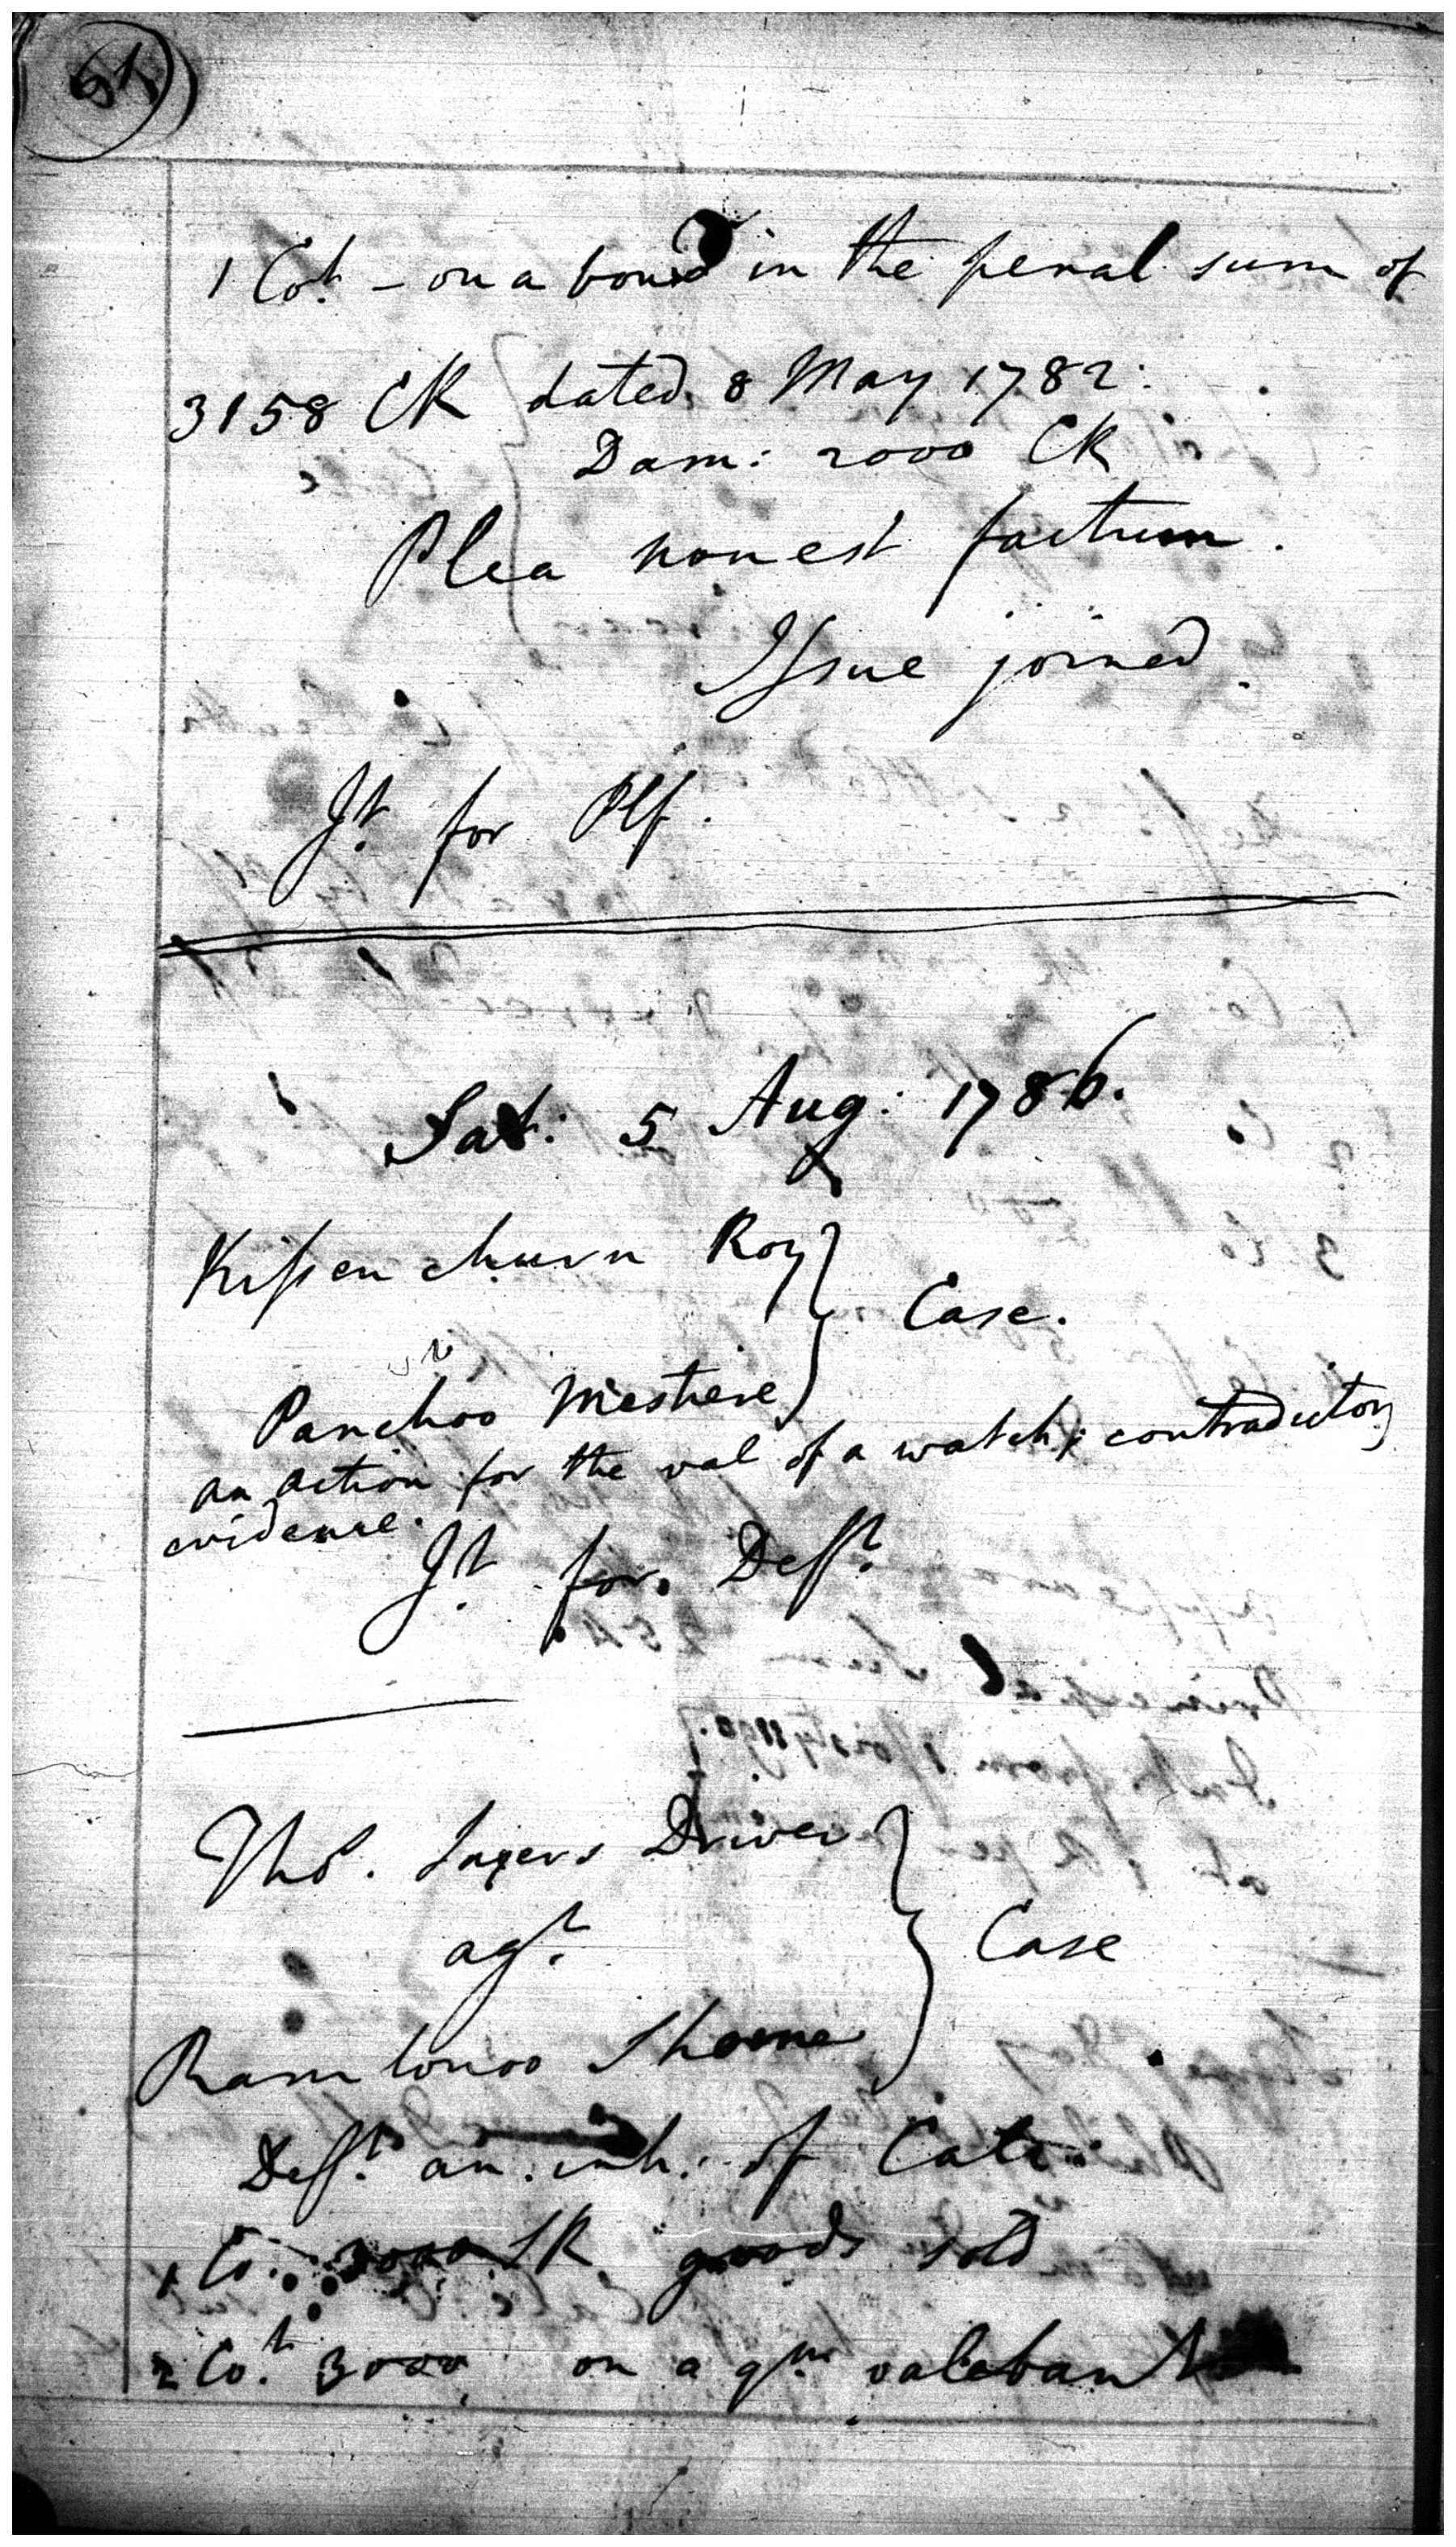 1 Cot. - on a bond in the penal sum of
3158 CR dated 8 May 1782:
Dam: 2000 CR
Plea non est factum.
Issue joined.
Jt. for Plf.
Sat: 5 Aug: 1786.
Kissen churn Roy
Case.
vs
Panchoo Mestrie
an action for the val of a watch; contradictory
evidence.
Jt. for Deft.
Thos. Driver
agt.
Case
Ramtonoo Shome
Deft. an inh: of Calc:
1 Co: 3000 SR goods sold
2 Cot. 3000 on a qm valebant